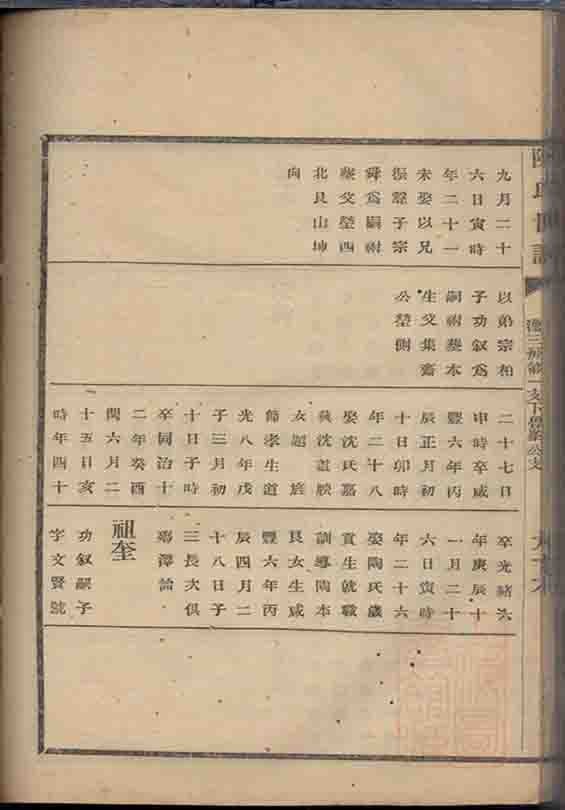 九月二十
六日寅時
年二十一
未娶以兄
振聲子宗
舜為嗣祔
蔡父塋西
北艮山坤
向
以弟宗柏
子功叙為
嗣祔葬本
生父集齋
公塋側
二十七日
申時卒咸
豐六年丙
辰正月初
十日卯時
年二十八
娶沈氏嘉
沈道
女
節孝生道
光八年戊
子三月初
十日子時
卒同治十
二年癸酉
閏六月二
十五日亥
時年四十
卒光緒六
年庚辰十
一月二十
六日寅時
年二十六
娶陶氏歲
貢生就職
訓導陶本
艮女生咸
豐六年丙
辰四月二
十八日子
三長次俱
殤澤論
祖奎
功叙嗣子
字文賢號